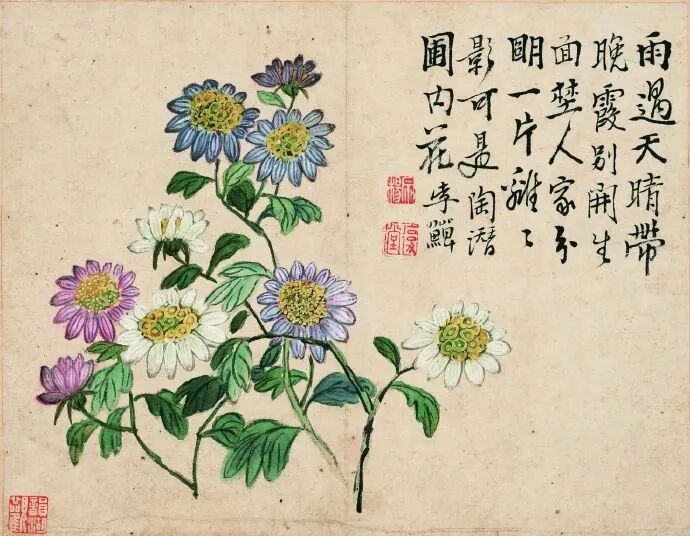 雨過天晴帶
晚霞别開生
面埜人家分
明一片籬〻
影可是陶潛
圃内花李鱓